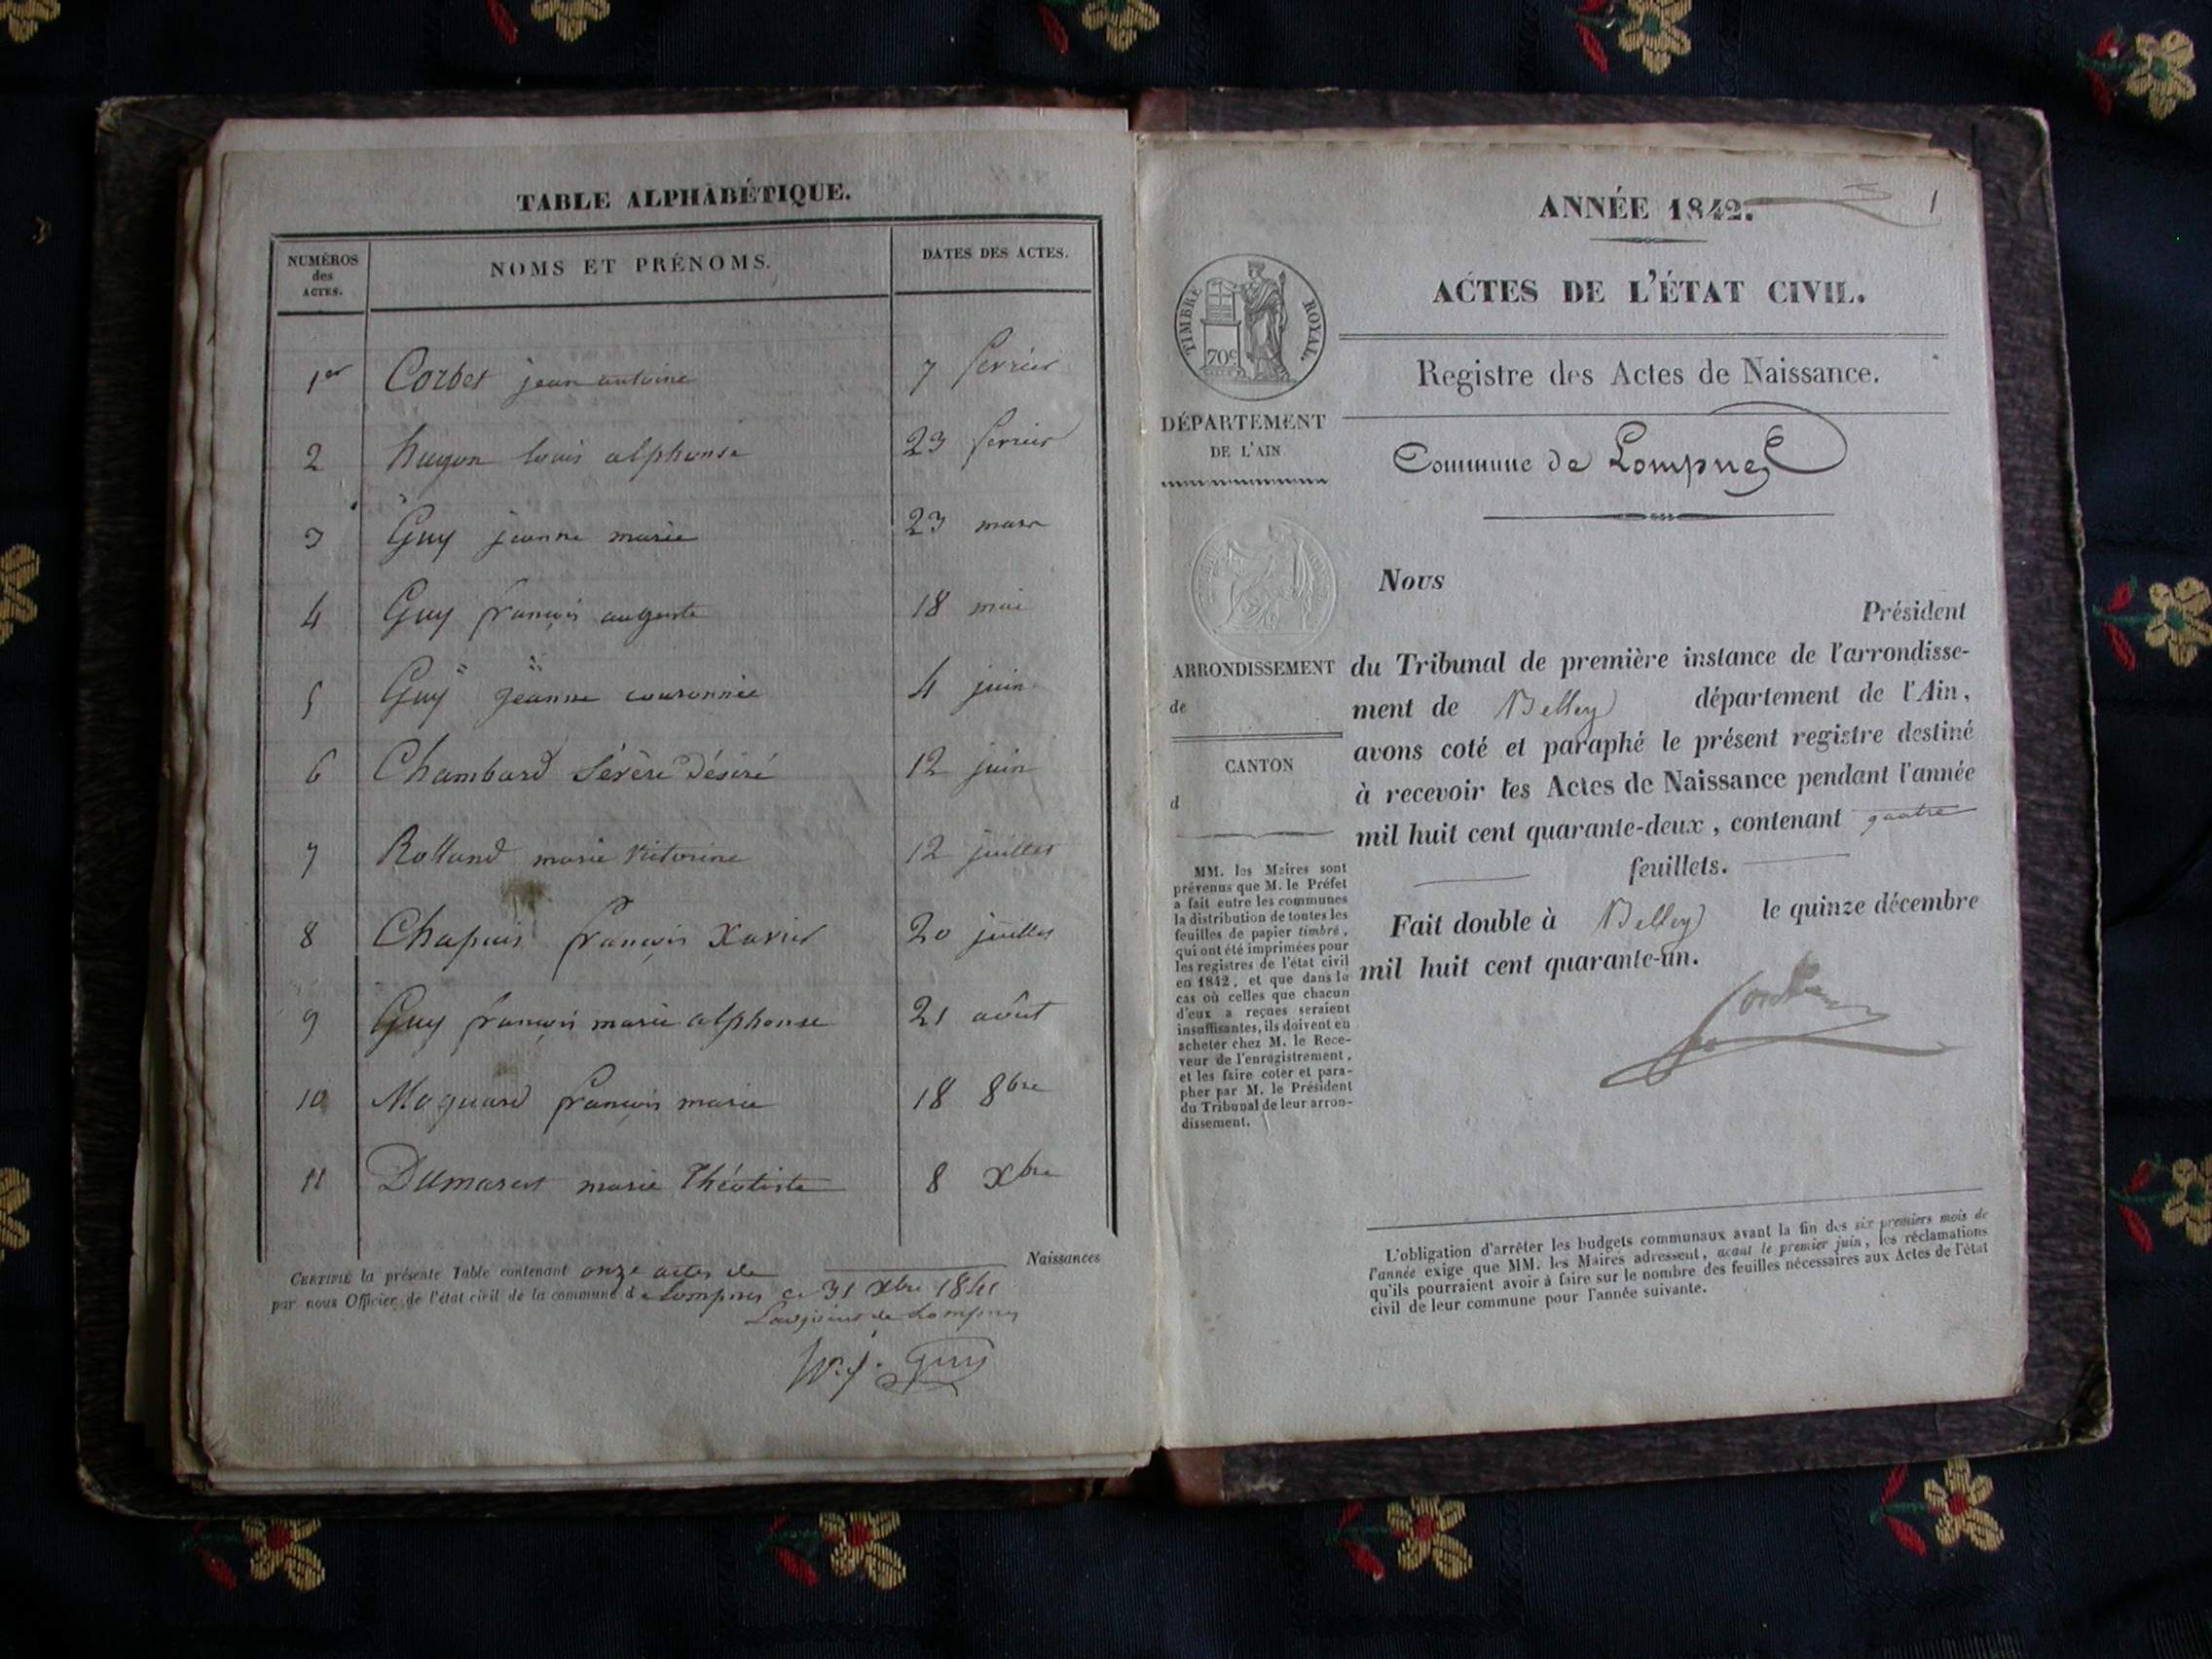 TABLE ALPHABÉTIQUE.
NUMÉROS des ACTES. NOMS ET PRÉNOMS. DATES DES ACTES.
1er Corbet jean antoine 7 fevrier
2 hugon louis alphonse 23 fevrier
3 Guy jeanne marie 23 mars
4 Guy françois auguste 18 mai
5 Guy jeanne couronnée 4 juin
6 Chambard Sévère Désiré 12 juin
7 Rolland marie victorine 12 juillet
8 Chapuis françois Xavier 20 juillet
9 Guy françois marie alphonse 21 août
10 Moquard françois marie 18 8bre
11 Dumarest marie Théotiste 8 Xbre
CERTIFIÉ la présente Table contenant onze actes de Naissances
par nous Officier de l'état civil de la commune de Lompnes ce 31 Xbre 1841
L'adjoint de Lompnes
Guy
ANNÉE 1842.
1
ACTES DE L'ÉTAT CIVIL.
Registre des Actes de Naissance.
TIMBRE ROYAL.
70c
DÉPARTEMENT
DE L'AIN
Commune de Lompnes
Nous
Président
du Tribunal de première instance de l'arrondisse-
ment de Belley département de l'Ain,
avons coté et paraphé le présent registre destiné
à recevoir les Actes de Naissance pendant l'année
mil huit cent quarante-deux, contenant quatre
feuillets.
Fait double à Belley le quinze décembre
mil huit cent quarante-un.
ARRONDISSEMENT
de
CANTON
d
MM. les Maires sont
prévenus que M. le Préfet
a fait entre les communes
la distribution de toutes les
feuilles de papier timbré,
qui ont été imprimées pour
les registres de l'état civil
en 1842, et que dans le
cas où celles que chacun
d'eux a reçues seraient
insuffisantes, ils doivent en
acheter chez M. le Rece-
veur de l'enregistrement,
et les faire coter et para-
pher par M. le Président
du Tribunal de leur arron-
dissement.
L'obligation d'arrêter les budgets communaux avant la fin des six premiers mois de
l'année exige que MM. les Maires adressent, avant le premier juin, les réclamations
qu'ils pourraient avoir à faire sur le nombre des feuilles nécessaires aux Actes de l'état
civil de leur commune pour l'année suivante.